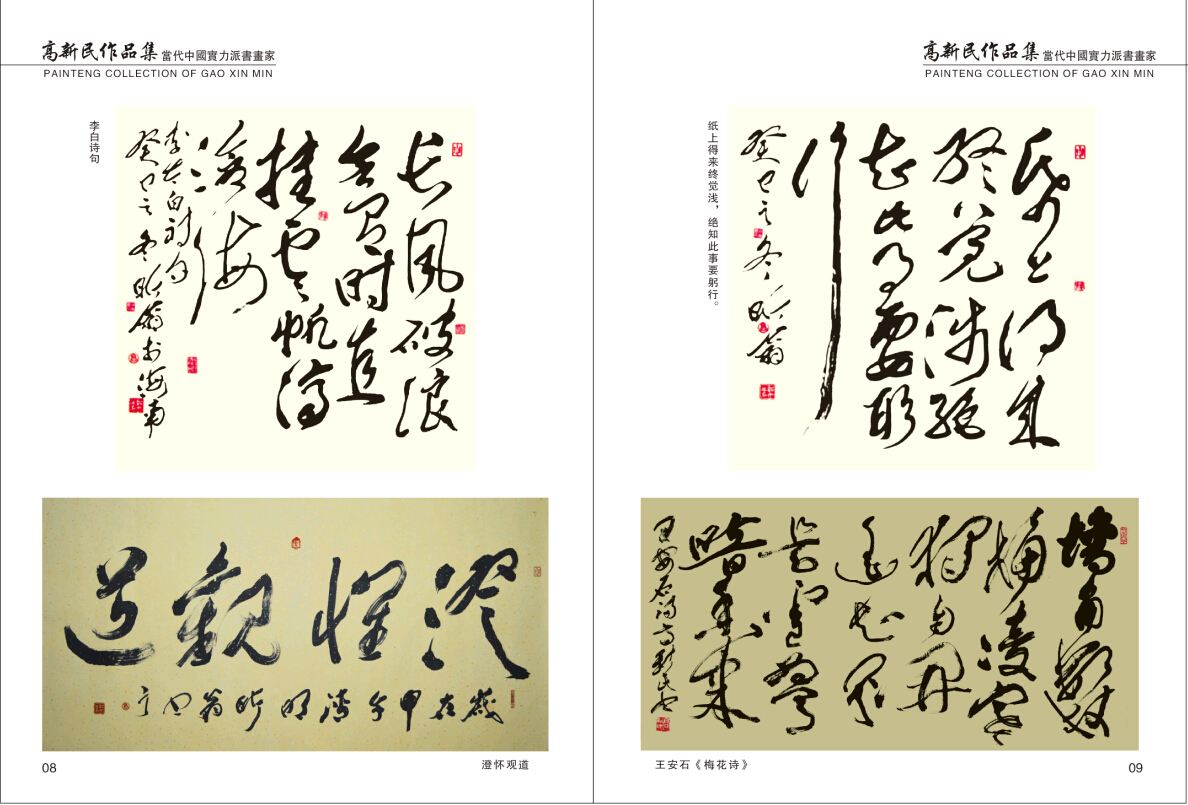 高新民作品集 當代中國實力派書畫家
PAINTENG COLLECTION OF GAO XIN MIN
李白诗句
长风破浪
会有时直
挂云帆济
沧海
李太白诗句
癸巳之冬昕翁书海南
澄怀观道
岁在甲午清明昕翁
澄怀观道
08
高新民作品集 當代中國實力派書畫家
PAINTENG COLLECTION OF GAO XIN MIN
纸上得来终觉浅，绝知此事要躬行。
纸上得来
终觉浅绝
知此事要躬
行
癸巳之冬昕翁
墙角数枝
梅凌寒
独自开
遥知不
是雪为
暗香来
王安石诗高新民书
王安石《梅花诗》
09